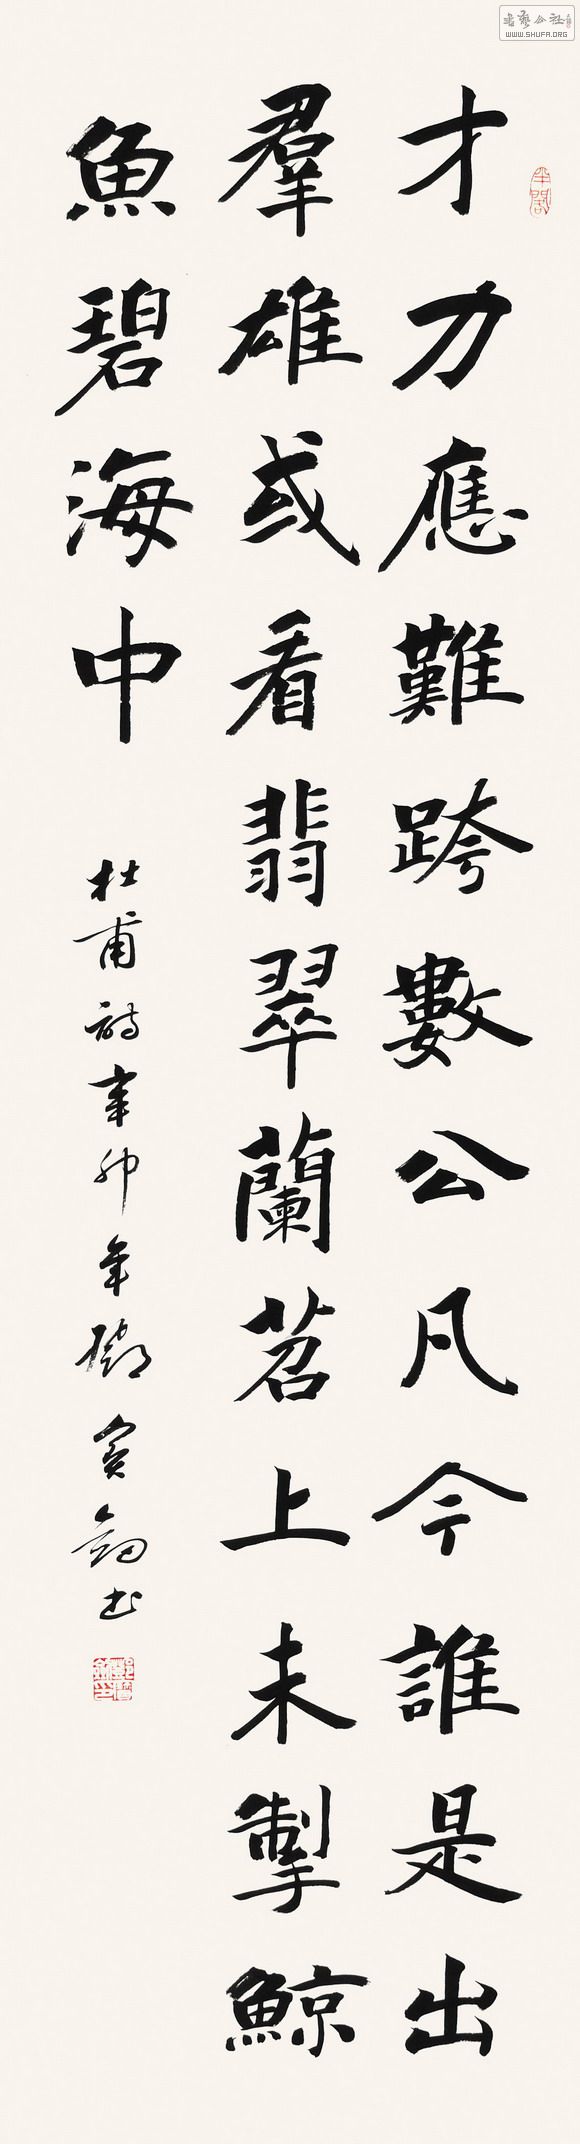 才力應難跨數公凡今誰是出
羣雄或看翡翠蘭苕上未掣鯨
魚碧海中
杜甫詩辛卯年鄧寶劍書
書藝公社
WWW.SHUFA.ORG